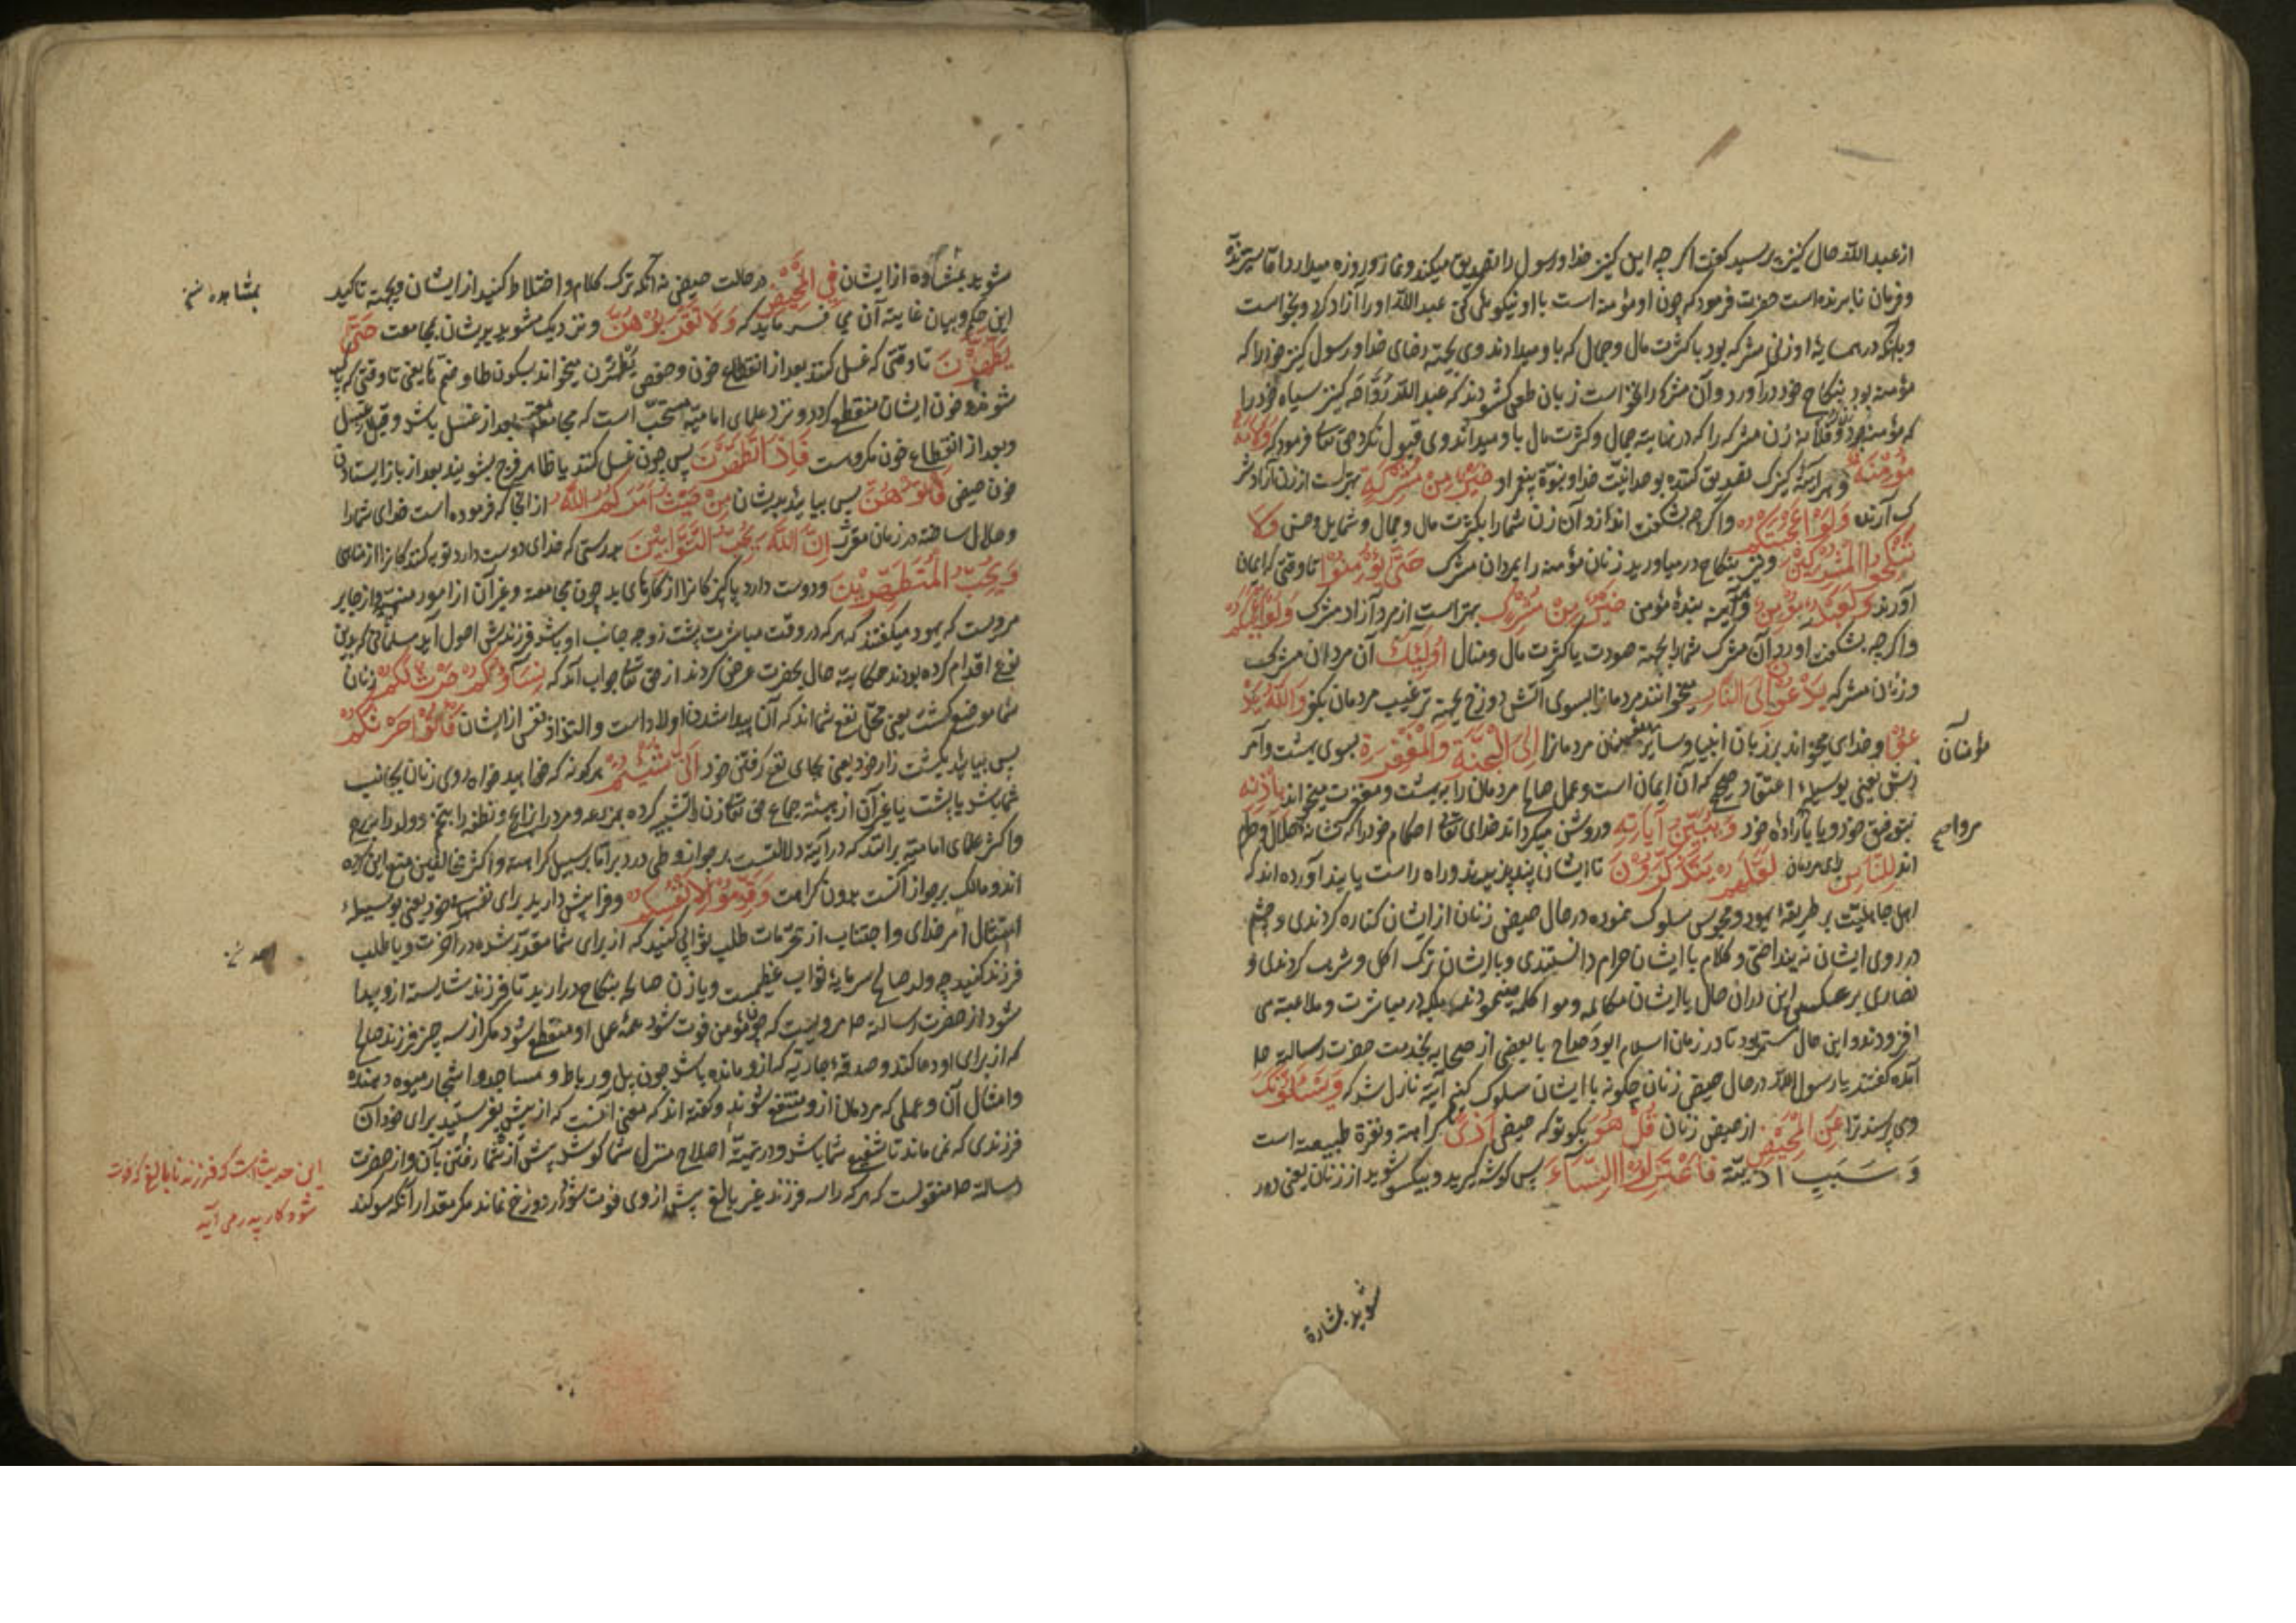 از عبد اللّه حال کنیز پرسید گفت اگر چه این کنیز خدا و رسول را تصدیق میکند و نماز و روزه میدارد اما سیرنده
و فرمان نابرنده است حضرت فرمود که چون او مؤمنه است با او نیکوئی کن عبد اللّه او را آزاد کرد و بخواست
و بانکه در همسایهٔ او زنی مشرکه بود با کثرت مال و جمال که باو میدادند وی بجهة رضای خدا و رسول کنیز خود را که
مؤمنه بود بنکاح خود در آورد و آن مشرکه را نخواست زبان طعن کشودند که عبد اللّه رواحه کنیز سیاه خود را
که مؤمنه بود و فلانه زن مشرکه را که در نهایة جمال و کثرت مال باو میدادند وی قبول نکرد حق تعا فرمود که وَلَاَمَةٌ
مُؤْمِنَةٌ و هر آینه کنیزک تصدیق کننده بوحدانیّت خدا و نبوّة پیغمبر او خَیْرٌ مِنْ مُشْرِکَةٍ بهتر است از زن آزاد شر
ک آرنده وَلَوْ اَعْجَبَتْکُمْ و اگر چه بشکفت اندازد آن زن شما را بکثرت مال و جمال و شمایل و حسن وَلَا
تُنْکِحُوا الْمُشْرِکِینَ و نیز بنکاح در میاورید زنان مؤمنه را بمردان مشرک حَتّٰی یُؤْمِنُوا تا وقتی که ایمان
آورند وَلَعَبْدٌ مُؤْمِنٌ و هر آینه بندهٔ مؤمن خَیْرٌ مِنْ مُشْرِکٍ بهتر است از مرد آزاد مشرک وَلَوْ اَعْجَبَکُمْ
و اگر چه بشکفت آورد آن مشرک شما را بجهة صورت یا کثرت مال و منال اُولٰئِکَ آن مردان مشرک
و زنان مشرکه یَدْعُونَ اِلَی النَّارِ میخوانند مردمانرا بسوی آتش دوزخ بجهة ترغیب مردمان بکفر وَاللّٰهُ یَدْ
عُوا و خدای میخواند بر زبان انبیا و سایر مردمانرا اِلَی الْجَنَّةِ وَالْمَغْفِرَةِ بسوی بهشت و آمر
زش یعنی بوسیلهٔ اعتقاد صحیح که آن ایمان است و عمل صالح مردمان را به بهشت و مغفرت میخواند بِاِذْنِهِ
بتوفیق خود و یا باراده خود وَیُبَیِّنُ آیَاتِهِ و روشن میکرداند خدای تعا احکام خود را که نشانهٔ حلال و حرام
اند لِلنَّاسِ برای مردمان لَعَلَّهُمْ یَتَذَکَّرُونَ تا ایشان پند پذیرند و راه راست یابند آورده اند که
اهل جاهلیّت بر طریقهٔ یهود و مجوس سلوک نموده در حال حیض زنان از ایشان کناره کردندی و چشم
در روی ایشان نینداختی و کلام با ایشان حرام دانستندی و با ایشان ترک اکل و شرب کردندی و
نصاری بر عکس این در آن حال با ایشان مکالمه و مواکله مینمودند بلکه در مباشرت و ملاعبه می
افزودند و این حال مستمر بود تا در زمان اسلام ابو دحداح با بعضی از صحابه بخدمت حضرت رسالة ص
آمده گفتند یا رسول اللّه در حال حیض زنان چکونه با ایشان سلوک کنیم آیه نازل شد که وَیَسْئَلُونَکَ
و می پرسند ترا عَنِ الْمَحِیضِ از حیض زنان قُلْ هُوَ بکو تو که حیض اَذًی کراهة و نفرة طبیعة است
وَ سَبَبِ اذیّة فَاعْتَزِلُوا النِّسَاءَ پس کوشه کیرید و بیکسو شوید از زنان یعنی دور
مؤمنان
شوید بمشاوة
شوید بمشاوة از ایشان فِی الْمَحِیضِ در حالت حیض نه آنکه ترک کلام و اختلاط کنید از ایشان و بجهة تاکید
این حکم و بیان غایة آن می فرماید که وَلَا تَقْرَبُوهُنَّ و نزدیک مشوید بدیشان بمجامعت حَتّٰی
یَطْهُرْنَ تا وقتی که غسل کنند بعد از انقطاع خون و حفص یَطْهُرْنَ میخواند بسکون طا و ضمّ ها یعنی تا وقتی که پاک
شوند و خون ایشان منقطع کردد و نزد علمای امامیّه مستحبّ است که مجامعت بعد از غسل باشد و قبل از غسل
و بعد از انقطاع خون مکروهست فَاِذَا تَطَهَّرْنَ پس چون غسل کنند یا ظاهر فرج بشویند بعد از باز ایستادن
خون حیض فَأْتُوهُنَّ پس بیایید بدیشان مِنْ حَیْثُ اَمَرَکُمُ اللّٰهُ از آنجا که فرموده است خدای شما را
و حلال ساخته در زمان مقرّر اِنَّ اللّٰهَ یُحِبُّ التَّوَّابِینَ بدرستی که خدای دوست دارد توبه کنندکانرا از مناهی
وَیُحِبُّ الْمُتَطَهِّرِینَ و دوست دارد پاکیزکانرا از کارهای بد چون مجامعة و غیر آن از امور منهیّه و از جابر
مرویست که یهود میکفتند که هر که در وقت مباشرت پشت زوجه جانب او باشد فرزندش احول آید مسلمانی که بدین
نوع اقدام کرده بودند حکایة حال بحضرت عرض کردند از حق تعا جواب آمد که نِسَاؤُکُمْ حَرْثٌ لَکُمْ زنان
شما موضع کشت یعنی محلّ نفع شمااند که آن پیدا شدن اولاد است و التذاذ نفس از ایشان فَأْتُوا حَرْثَکُمْ
پس بیایید بکشت زار خود یعنی بجای نفع کرفتن خود اَنّٰی شِئْتُمْ هر کونه که خواهید خواه روی زنان بجانب
شما باشد یا پشت یا غیر آن از هیئة جماع حق تعا زنان را تشبیه کرده بمزرعه و مرد را بزارع و نطفه را بتخم و ولد را بزرع
و اکثر علمای امامیّه برآنند که در آیه دلالتست بر جواز وطی در دبر امّا بر سبیل کراهة و اکثر مخالفین منع این کرده
اند و مالک بر جواز آنست بدون کراهت وَقَدِّمُوا لِاَنْفُسِکُمْ و فرا پیش دارید برای نفسهای خود یعنی بوسیلهٔ
امتثال امر خدای و اجتناب از محرّمات طلب ثوابی کنید که از برای شما مقدّر شده در آخرت و یا طلب
فرزند کنید چه ولد صالح سرمایهٔ ثواب عظیمست و یا زن صالحه بنکاح در ارید تا فرزند شایسته ازو پیدا
شود از حضرت رسالة ص مرویست که چون مؤمن فوت شود همه عمل او منقطع شود مکر از سه چیز فرزند صالح
که از برای او دعا کند و صدقهٔ جاریه که ازو مانده باشد چون پل و رباط و مساجد و اشجار میوه دهنده
و امثال آن و عملی که مردمان ازو منتفع شوند و کفته اند که معنی آنست که از پیش بفرستید برای خود آن
فرزندی که نمی ماند تا شفیع شما باشد و در تهیّهٔ اصلاح منزل شما کوشد پیش از شما رفتن بآن و از حضرت
رسالة ص منقولست که هر که را سه فرزند غیر بالغ پیش از وی فوت شود در دوزخ نماند مکر مقدار آنکه سوکند
بمشاهده
این حدیث است که فرزند نابالغ که فوت
شود کار پدر می آید